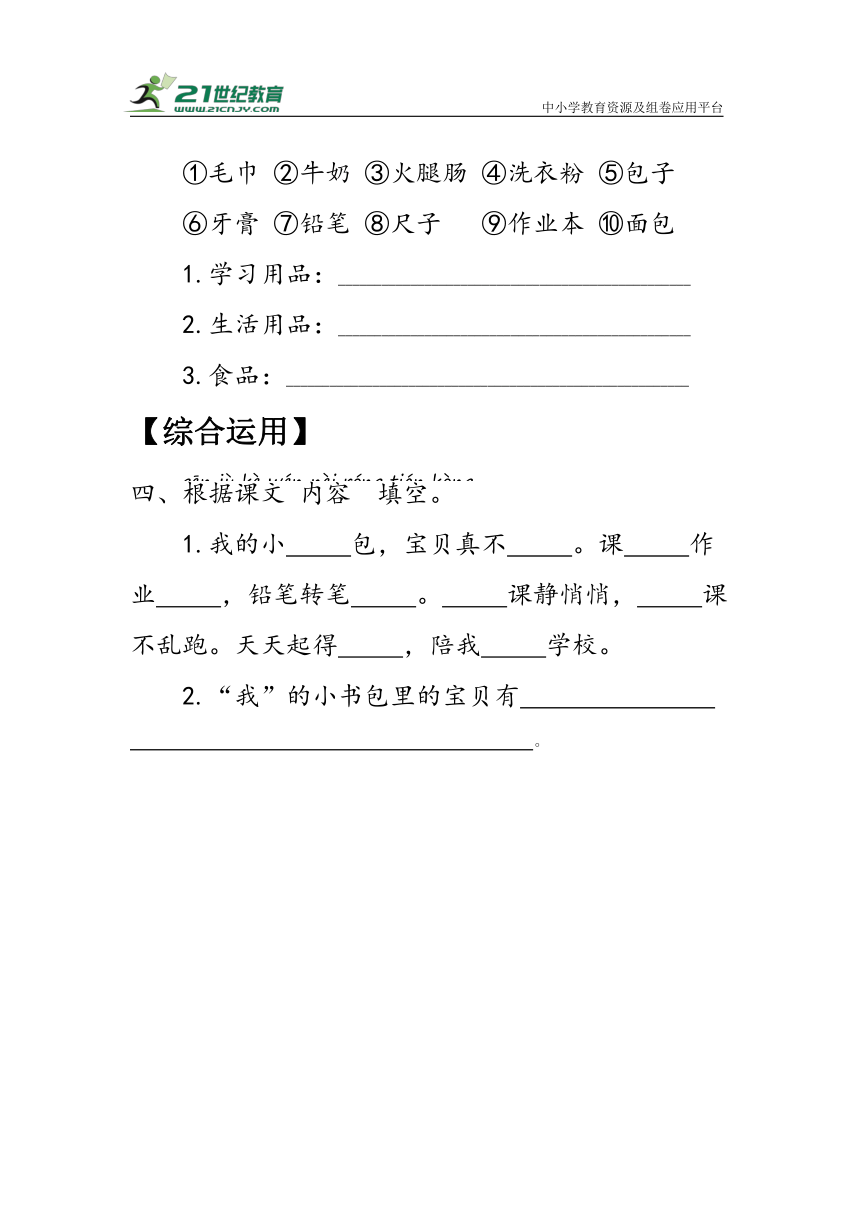 21世纪教育
WWW.21CNJY.COM
中小学教育资源及组卷应用平台
①毛巾 ②牛奶 ③火腿肠 ④洗衣粉 ⑤包子
⑥牙膏 ⑦铅笔 ⑧尺子 ⑨作业本 ⑩面包
1.学习用品：
2.生活用品：
3.食品：
【综合运用】
四、根据课文 内容 填空。
1.我的小_____包，宝贝真不_____。课_____作
业_____，铅笔转笔_____。_____课静悄悄，_____课
不乱跑。天天起得_____，陪我_____学校。
2.“我”的小书包里的宝贝有
。